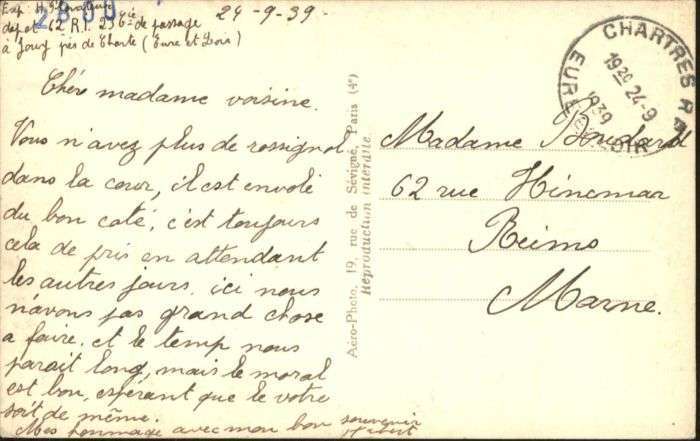 Exp. H.
dépôt 62 R.I. 23e Cie de passage
à Jouy près de Charte (Eure et Loir)
24-9-39.
Chére madame voisine.
Vous n'avez plus de rossignol
dans la cour, il est envolé
du bon coté, c'est toujours
cela de pris en attendant
les autres jours. ici nous
n'avons pas grand chose
a faire. et le temps nous
parait long, mais le moral
est bon, espérant que le votre
soit de même.
Mes hommage avec mon bon souvenir
Aéro-Photo, 19, rue de Sévigné, Paris (4e)
Réproduction interdite.
CHARTRES R.P.
1920 24-9
1939
EURE
LOIR
Madame Boudard
62 rue Hincmar
Reims
Marne.